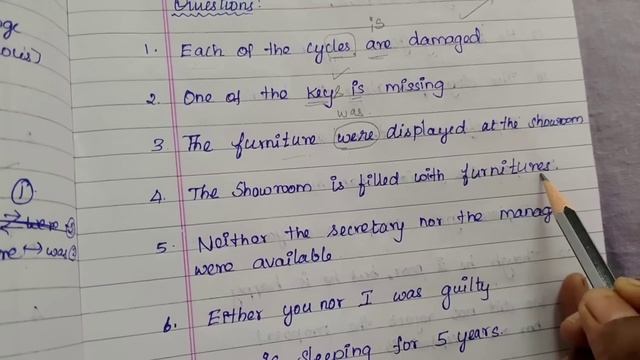 Questions:
is
1. Each of the cycles are damaged
2. One of the keys is missing
was
3 The furniture were displayed at the showroom
4. The Showroom is filled with furnitures.
5. Neither the secretary nor the manag
were available
6. Either you nor I was guilty
sleeping for 5 years.
①
were
↔ was